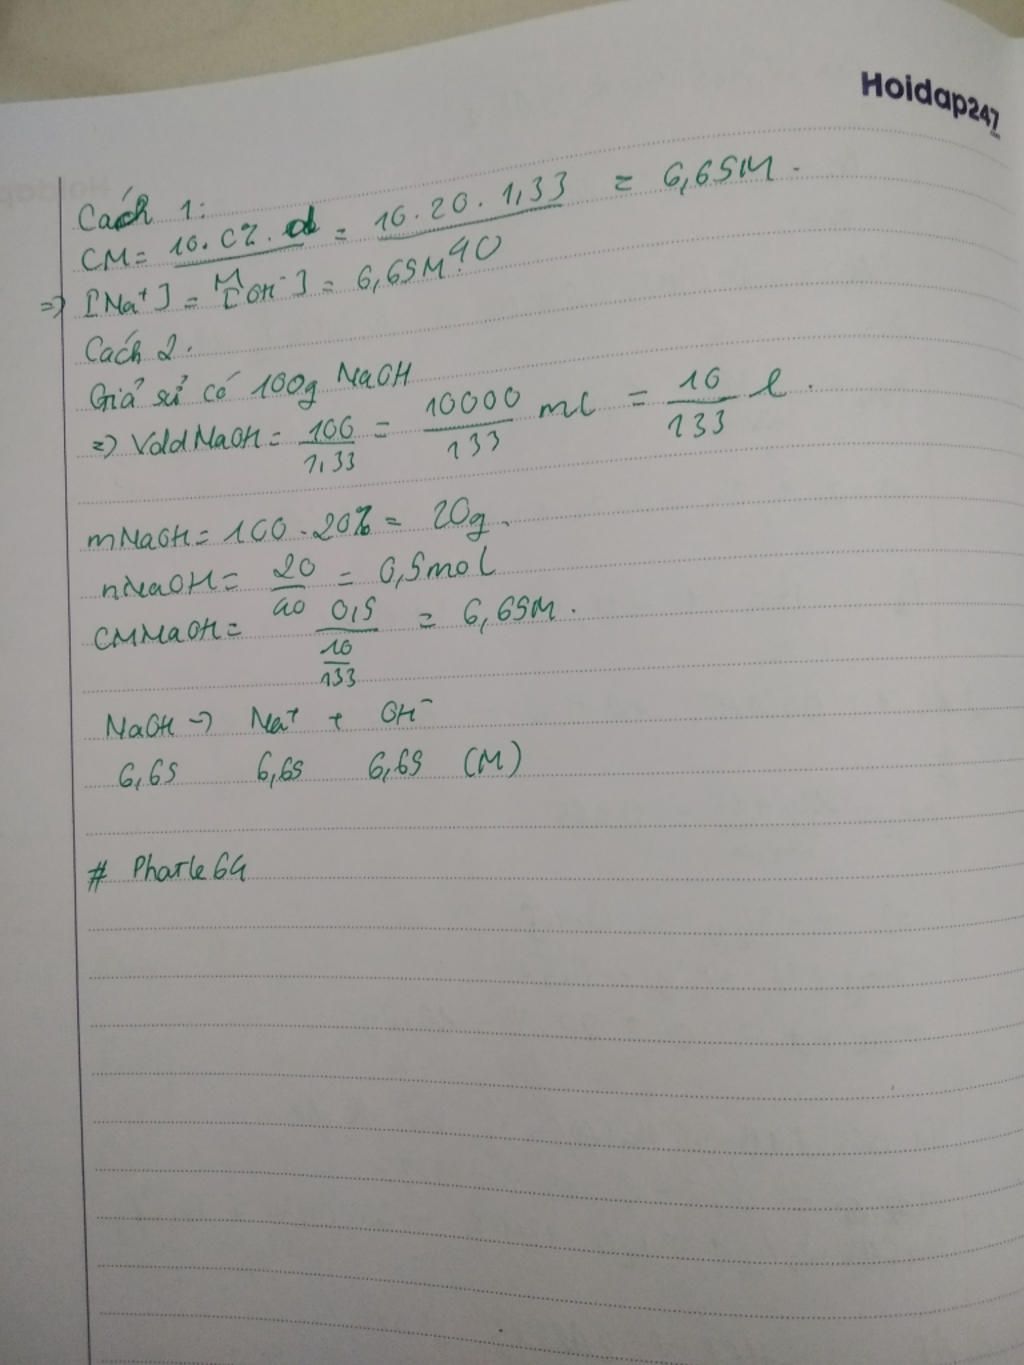 Hoidap247
.com
Cách 1:
CM = 10. C%. d / M = 10. 20. 1,33 / 40 = 6,65M.
=> [Na⁺] = [OH⁻] = 6,65M.
Cách 2.
Giả sử có 100g NaOH
=> VddNaOH = 100 / 1,33 = 10000 / 133 ml = 10 / 133 l.
mNaOH = 100. 20% = 20g.
nNaOH = 20 / 40 = 0,5mol
CMNaOH = 0,5 / 10/133 = 6,65M.
NaOH -> Na⁺ + OH⁻
6,65 6,65 6,65 (M)